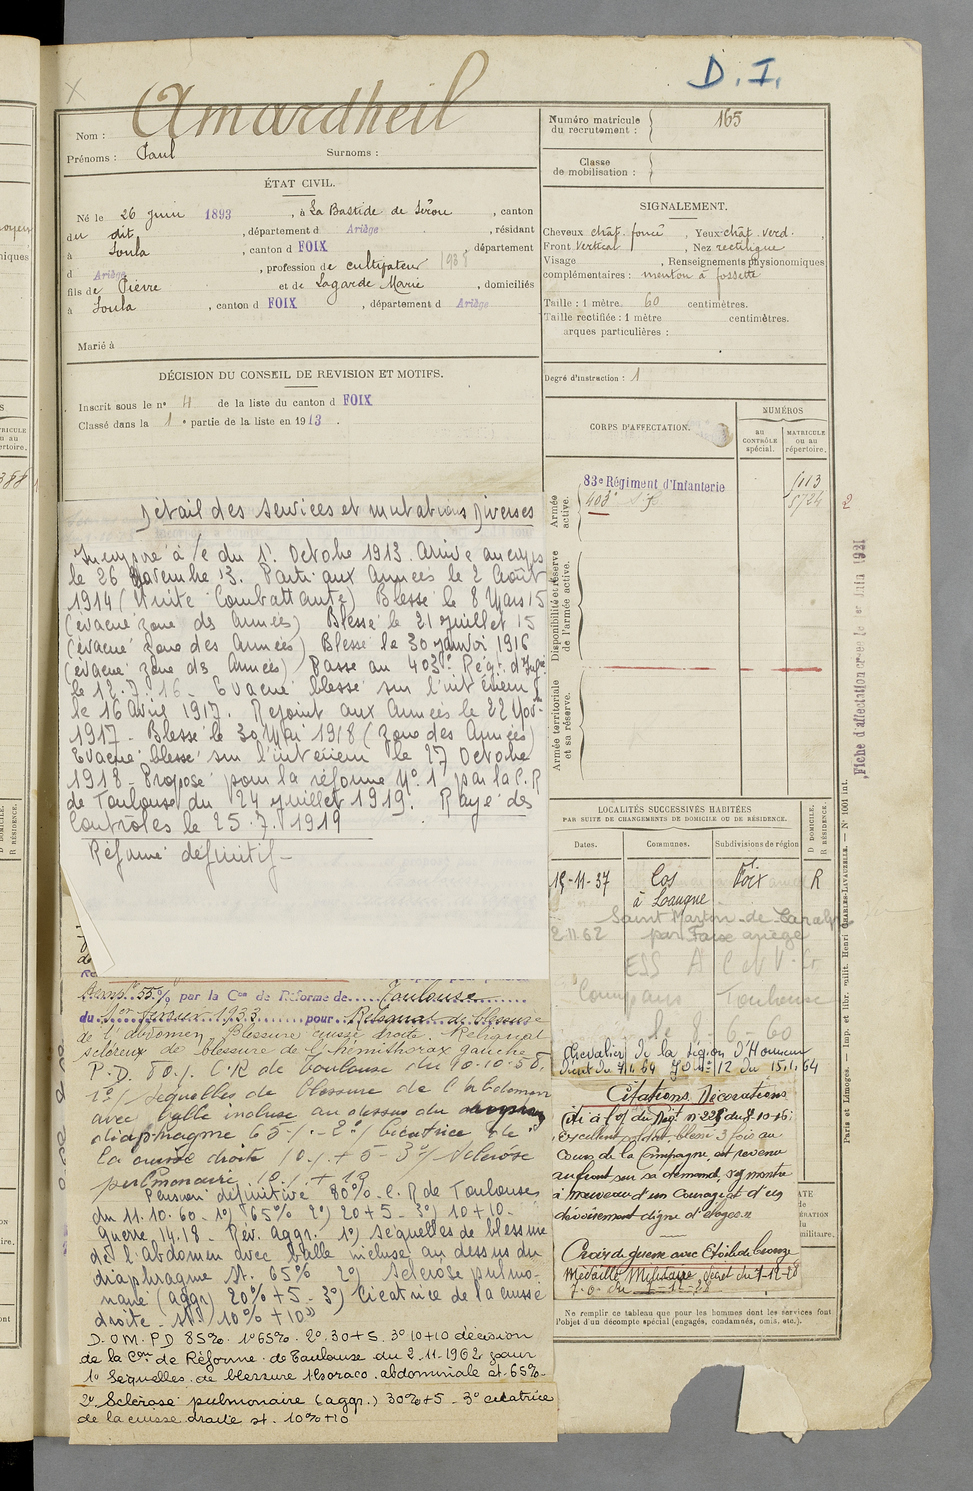 D. I.
Amardheil
Nom :
Prénoms : Paul Surnoms :
Numéro matricule
du recrutement : 165
Classe
de mobilisation :
ÉTAT CIVIL.
Né le 26 juin 1893, à La Bastide de Sérou, canton
du dit, département d Ariège, résidant
à Soula, canton d FOIX, département
d Ariège, profession de cultivateur
fils de Pierre et de Lagarde Marie, domiciliés
à Soula, canton d FOIX, département d Ariège
Marié à
SIGNALEMENT.
Cheveux chât. foncé, Yeux chât. verd.,
Front vertical, Nez rectiligne
Visage , Renseignements physionomiques
complémentaires : menton à fossette
Taille : 1 mètre. 60 centimètres.
Taille rectifiée : 1 mètre centimètres.
arques particulières :
Degré d'instruction : 1
DÉCISION DU CONSEIL DE REVISION ET MOTIFS.
Inscrit sous le n° 4 de la liste du canton d FOIX
Classé dans la 1 e partie de la liste en 1913.
CORPS D'AFFECTATION.
NUMÉROS
au
CONTRÔLE
spécial.
MATRICULE
ou au
répertoire.
Armée
active.
83e Régiment d'Infanterie
403e
5724 2
Disponibilité et réserve
de l'armée active.
Armée territoriale
et sa réserve.
Fiche d'affectation créée le 1er Juin 1931
Détail des Services et mutations Diverses
Incorporé à /c du 1er Octobre 1913. Arrivé au corps
le 26 Novembre 13. Parti aux Armées le 2 Août
1914 (Unité Combattante) Blessé le 8 Mars 15
(évacué zone des Armées) Blessé le 21 Juillet 15
(évacué zone des Armées) Blessé le 30 Janvier 1916
(évacué zone des Armées) Passé au 403e Rég. d'Infie
le 12.7.16 - Evacué blessé sur l'intérieur
le 16 Avril 1917. Rejoint aux Armées le 22 Nov.
1917 - Blessé le 30 Mai 1918 (zone des Armées)
Evacué blessé sur l'intérieur le 27 Octobre
1918 - Proposé pour la réforme N° 1 par la C.R
de Toulouse du 24 Juillet 1919. Rayé des
Contrôles le 25.7.1919
Réformé définitif -
55 % par la Con de Réforme de Toulouse
du 1933 pour Reliquat de blessure
de l'abdomen. Blessure cuisse droite. Reliquat
scléreux de blessure de l'hémithorax gauche -
P.D. 80% C.R de Toulouse du 90.10.58.
1°/ Séquelles de blessure de l'abdomen
avec balle incluse au dessus du
diaphragme 65% - 2°/ Cicatrice de
la cuisse droite 10% + 5 - 3°/ Sclérose
pulmonaire 10% + 10
Pension définitive 80% - C.R de Toulouse
du 11.10.60 - 1°) 65% 2°) 20+5 - 3°) 10+10 -
Guerre 14.18 - Rév. Aggr. 1°) Séquelles de blessure
de l'abdomen avec balle incluse au dessus du
diaphragme st. 65% 2°) Sclérose pulmo-
naire (aggr) 20% + 5 - 3°) Cicatrice de la cuisse
droite - st. 10% + 10
D.O.M. P.D 85% - 1° 65% - 2° 30+5 3° 10+10 décision
de la Con de Réforme de Toulouse du 2.11.1962 pour
1° Séquelles de blessure thoraco abdominale st. 65% -
2° Sclérose pulmonaire (aggr.) 30% + 5 - 3° cicatrice
de la cuisse droite st. 10% + 10
LOCALITÉS SUCCESSIVES HABITÉES
PAR SUITE DE CHANGEMENTS DE DOMICILE OU DE RÉSIDENCE.
Dates. Communes. Subdivisions de région
D DOMICILE.
R RÉSIDENCE.
15-11-37 Cos Foix R
à
Saint Martin-de-Caralp
2.11.62 par Foix ariège
Toulouse
le 8-6-60
Chevalier de la Légion d'Honneur
Citations Décorations
Cité à l'o/ du Régt n° 228 du 8-10-16 :
"Excellent soldat, blessé 3 fois au
cours de la Campagne, est revenu
au front sur sa demande, s'y montre
à nouveau d'un courage et d'un
dévouement digne d'éloges."
Croix de guerre avec Etoile de bronze
Médaille Militaire décret du 7-12-28
Ne remplir ce tableau que pour les hommes dont les services font
l'objet d'un décompte spécial (engagés, condamnés, omis, etc.).
Paris et Limoges. — Imp. et libr. milit. Henri CHARLES-LAVAUZELLE. — N° 1001 int.